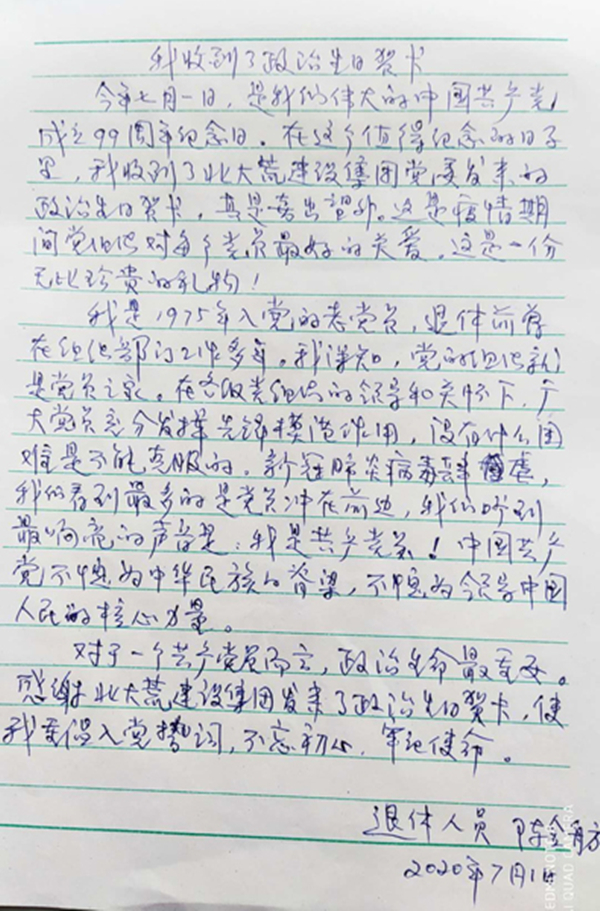 我收到了政治生日贺卡
今年七月一日，是我们伟大的中国共产党
成立99周年纪念日。在这个值得纪念的日子
里，我收到了北大荒建设集团党委发来的
政治生日贺卡，真是喜出望外。这是疫情期
间党组织对每个党员最好的关爱，这是一份
无比珍贵的礼物！
我是1975年入党的老党员，退休前曾
在组织部门工作多年。我深知，党的组织就
是党员之家。在各级党组织的领导和关怀下，广
大党员充分发挥先锋模范作用，没有什么困
难是不能克服的。新冠肺炎病毒肆虐，
我们看到最多的是党员冲在前边，我们听到
最响亮的声音是：我是共产党员！中国共产
党不愧为中华民族的脊梁，不愧为领导中国
人民的核心力量。
对于一个共产党员而言，政治生命最重要。
感谢北大荒建设集团发来了政治生日贺卡，使
我重温入党誓词，不忘初心，牢记使命。
退休人员 陈金
2020年7月1日
QUAD CAMERA